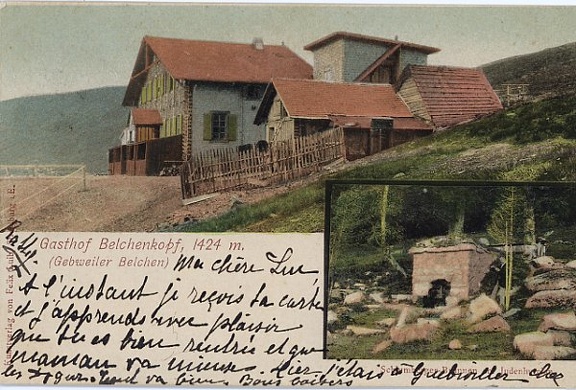 Gasthof Belchenkopf, 1424 m.
(Gebweiler Belchen)
Ma chère Lu
A l'instant je reçois ta carte
et j'apprends avec plaisir
que tu es bien rentrée et que
maman va mieux. Hier j'étais à Guebwiller chez
va bien Bons baisers
Kunstverlag von Felix